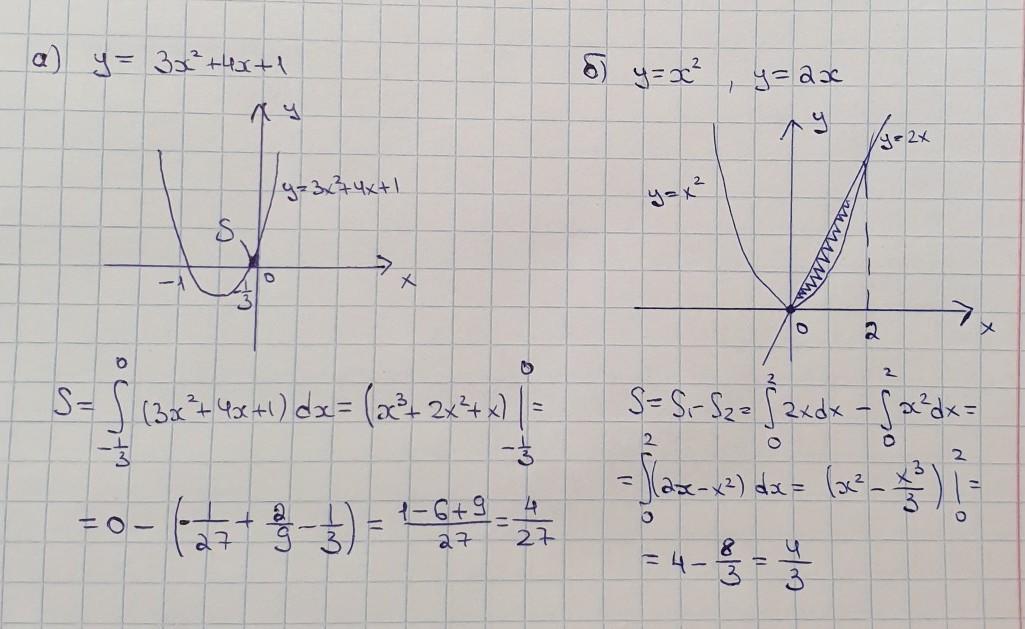 а) y = 3x²+4x+1
y
y=3x²+4x+1
S
-1
-1/3
0
x
S = ∫_{-1/3}^{0} (3x²+4x+1) dx = (x³+2x²+x) |_{-1/3}^{0} =
= 0 - (-1/27 + 2/9 - 1/3) = (1-6+9)/27 = 4/27
б) y=x² , y=2x
y
y=2x
y=x²
0
2
x
S = S₁-S₂ = ∫_{0}^{2} 2xdx - ∫_{0}^{2} x²dx =
= ∫_{0}^{2} (2x-x²) dx = (x² - x³/3) |_{0}^{2} =
= 4 - 8/3 = 4/3